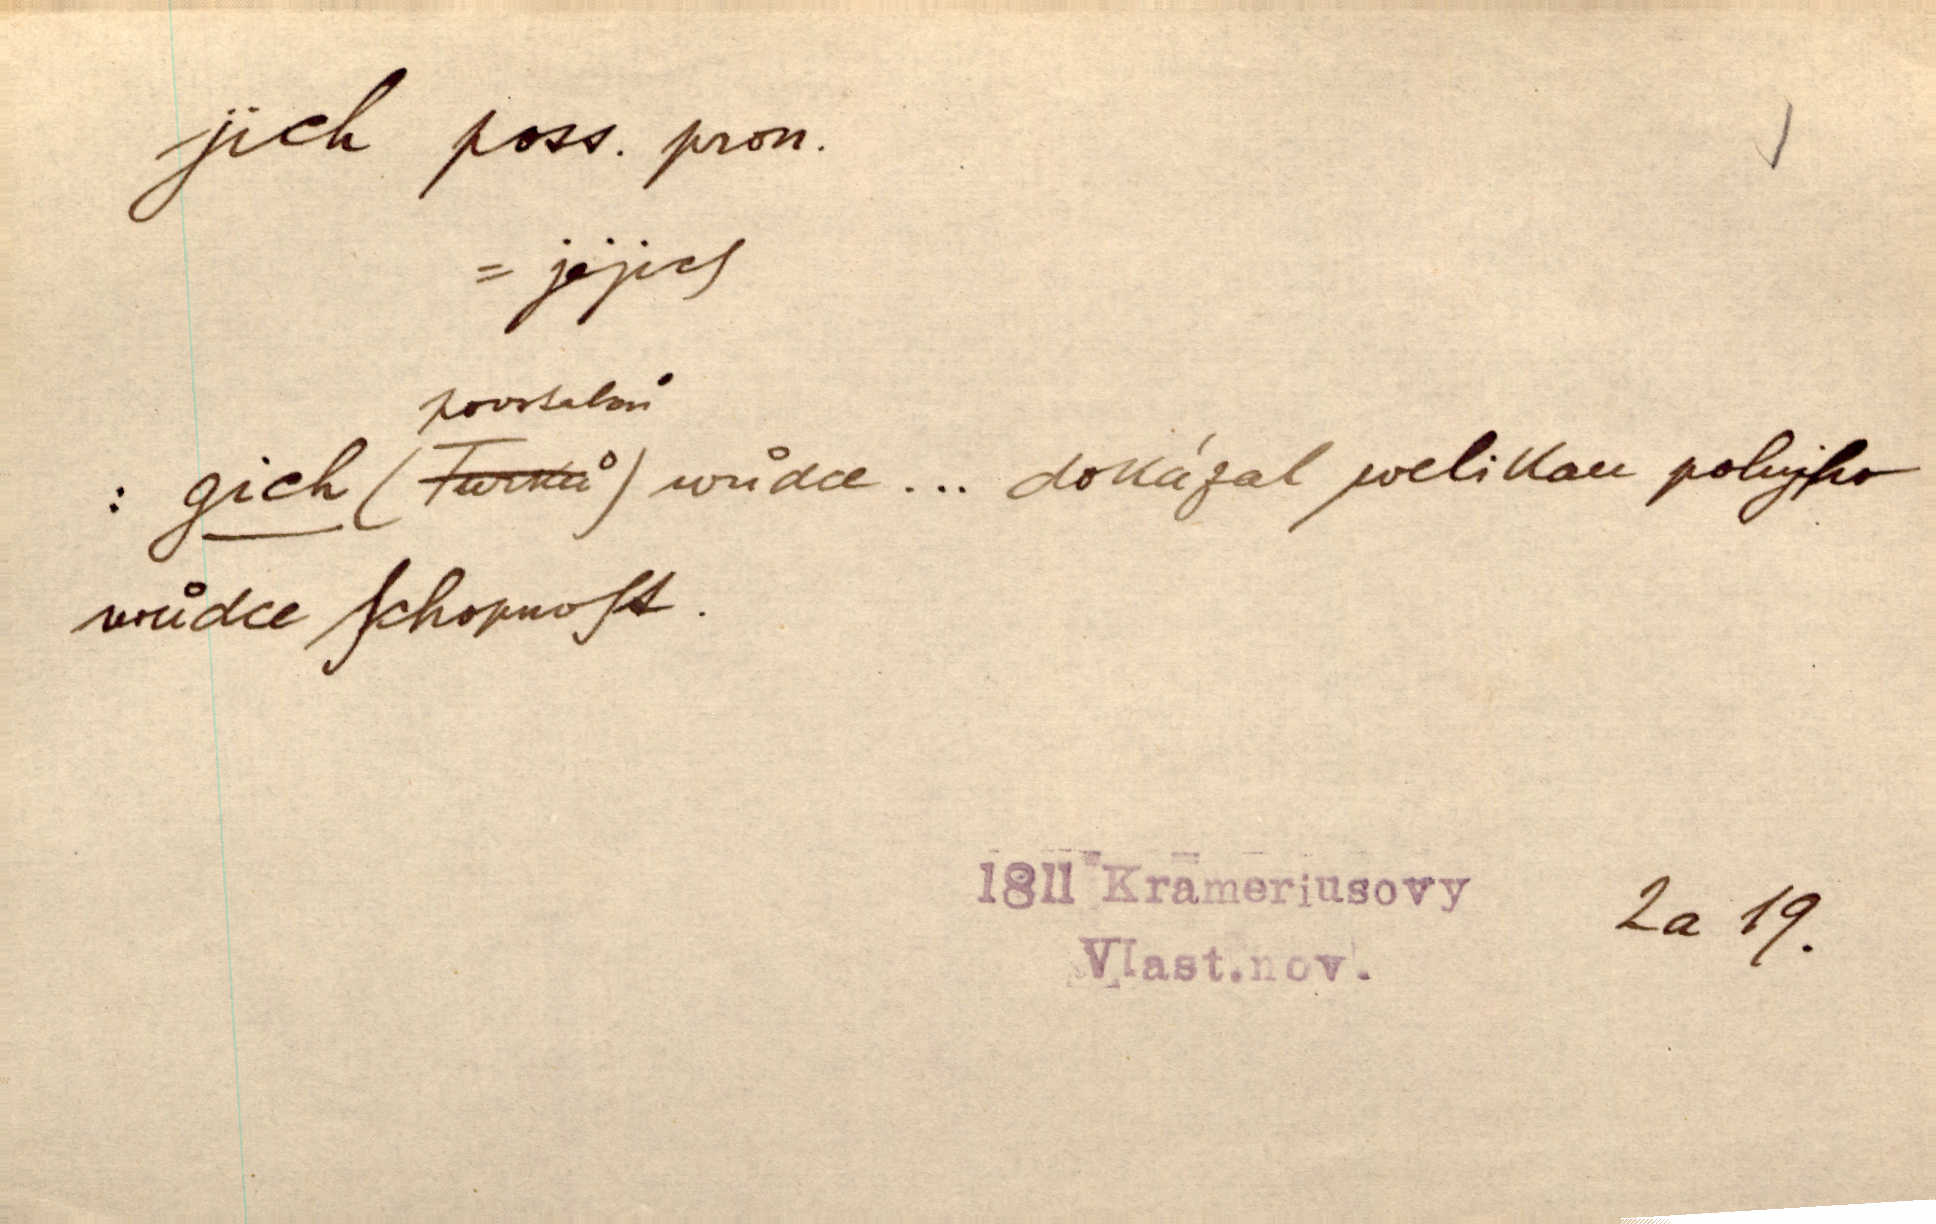 jich poss. pron.
= jejich
povstalců
: gich (Turků) wůdce ... dokázal welikau polnjho
wůdce ſchopnoſt.
1811 Krameriusovy
Vlast.nov.
2a 19.